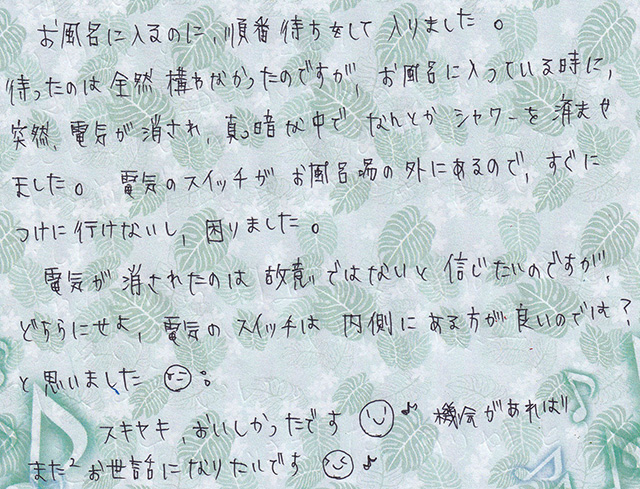 お風呂に入るのに、順番待ちをして入りました。
待ったのは全然構わなかったのですが、お風呂に入っている時に、
突然、電気が消され、真っ暗な中でなんとかシャワーを済ませ
ました。電気のスイッチがお風呂場の外にあるので、すぐに
つけに行けないし、困りました。
電気が消されたのは故意ではないと信じたいのですが、
どちらにせよ、電気のスイッチは内側にある方が良いのでは?
と思いました。
スキヤキ、おいしかったです♪ 機会があれば
また²お世話になりたいです♪